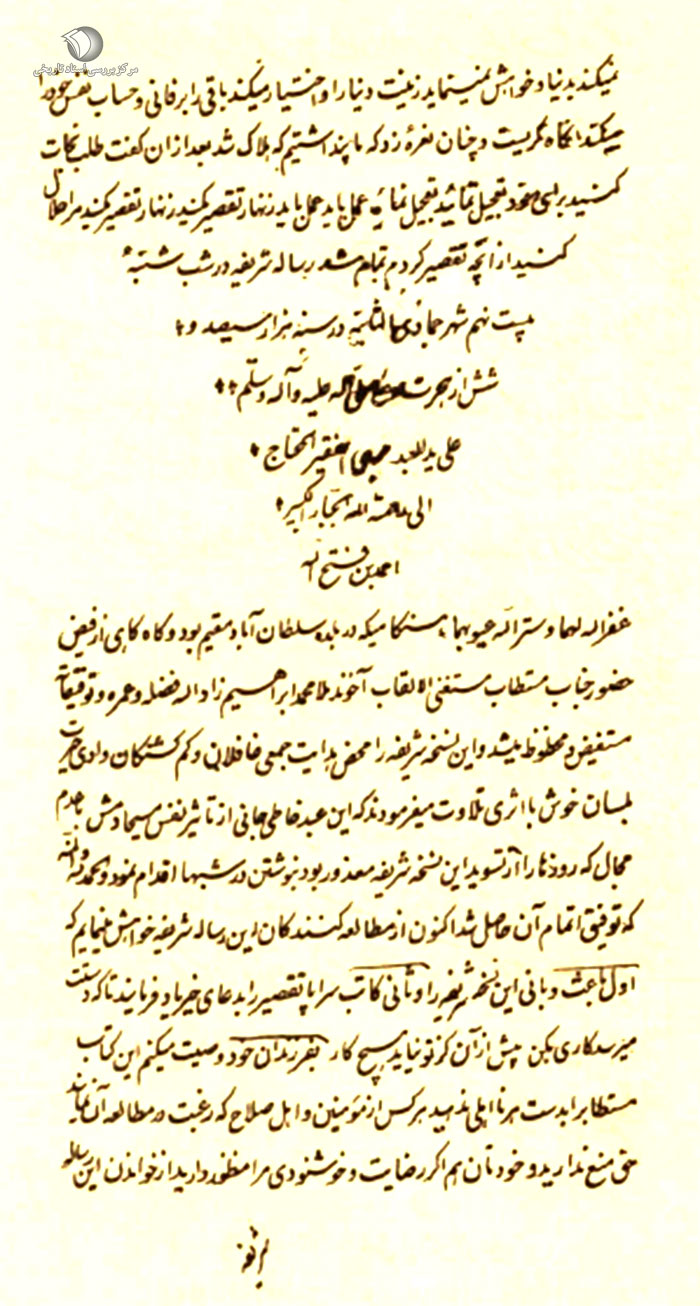 مرکز بررسی اسناد تاریخی
نمیکند بدنیا و خواهش نمینماید زینت دنیا را و اختیار میکند باقی را بر فانی و حساب نفس خود را
میکند آنگاه گریست و چنان نعرهٔ زد که ما پنداشتیم که هلاک شد بعد از آن گفت طلب نجات
کنید برای خود تعجیل نمائید تعجیل نمائید عمل باید عمل باید زنهار تقصیر مکنید زنهار تقصیر مکنید مرا حلال
کنید از آنچه تقصیر کردم تمام شد رساله شریفه در شب شنبهٔ
بیست نهم شهر جمادی الثانیه در سنه هزار سیصد و
شش از هجرت صلی الله علیه و آله و سلم
علی ید العبد الفقیر المحتاج
الی رحمة الله الجبار الکبیر
احمد بن فتح اله
غفر اله لهما و ستر اله عیوبهما هنگامیکه در بلده سلطان آباد مقیم بود و گاه گاهی از فیض
حضور جناب مستطاب مستغنی الالقاب آخوند ملا محمد ابراهیم زاد اله فضله و عمره و توفیقاته
مستفیض و محظوظ میشد و این نسخه شریفه را محض هدایت جمعی غافلان و گم گشتگان وادی حیرت
بلسان خوش با اثری تلاوت میفرمودند که این عبد خاطی جانی از تاثیر نفس مسیحا دمش با عدم
مجال که روزها را از تسوید این نسخه شریفه معذور بود بنوشتن در شبها اقدام نمود و الحمد لله و المنه
که توفیق اتمام آن حاصل شد اکنون از مطالعه کنندگان این رساله شریفه خواهش مینمایم که
اول باعث و بانی این نسخه شریفه را و ثانی کاتب سراپا تقصیر را بدعای خیر یاد فرمایند تا که دستت
میرسد کاری بکن پیش از آن کز تو نیاید هیچ کار بفرزندان خود وصیت میکنم این کتاب
مستطاب را بدست هر نااهلی ندهید هر کس از مؤمنین و اهل صلاح که رغبت در مطالعه آن نماید
حق منع ندارید و خودتان هم اگر رضایت و خوشنودی مرا منظور دارید از خواندن این رساله